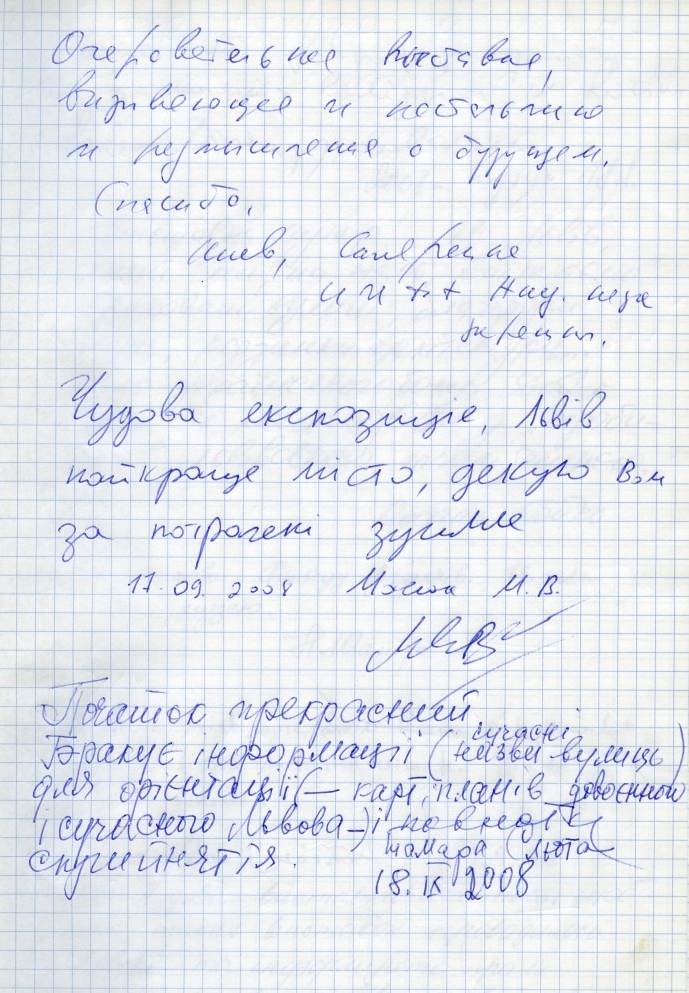 Очаровательная выставка,
вызывающая и ностальгию
и размышления о будущем.
Спасибо.
Киев,
Чудова експозиціє, Львів
найкраще місто, дякую Вам
за потрачені зусилля
17.09.2008 М.В.
Початок прекрасний.
Бракує інформації (сучасні назви вулиць)
для орієнтації (– карт, планів довоєнного
і сучасного Львова –) і повноти
сприйняття.
Тамара
18.IX 2008